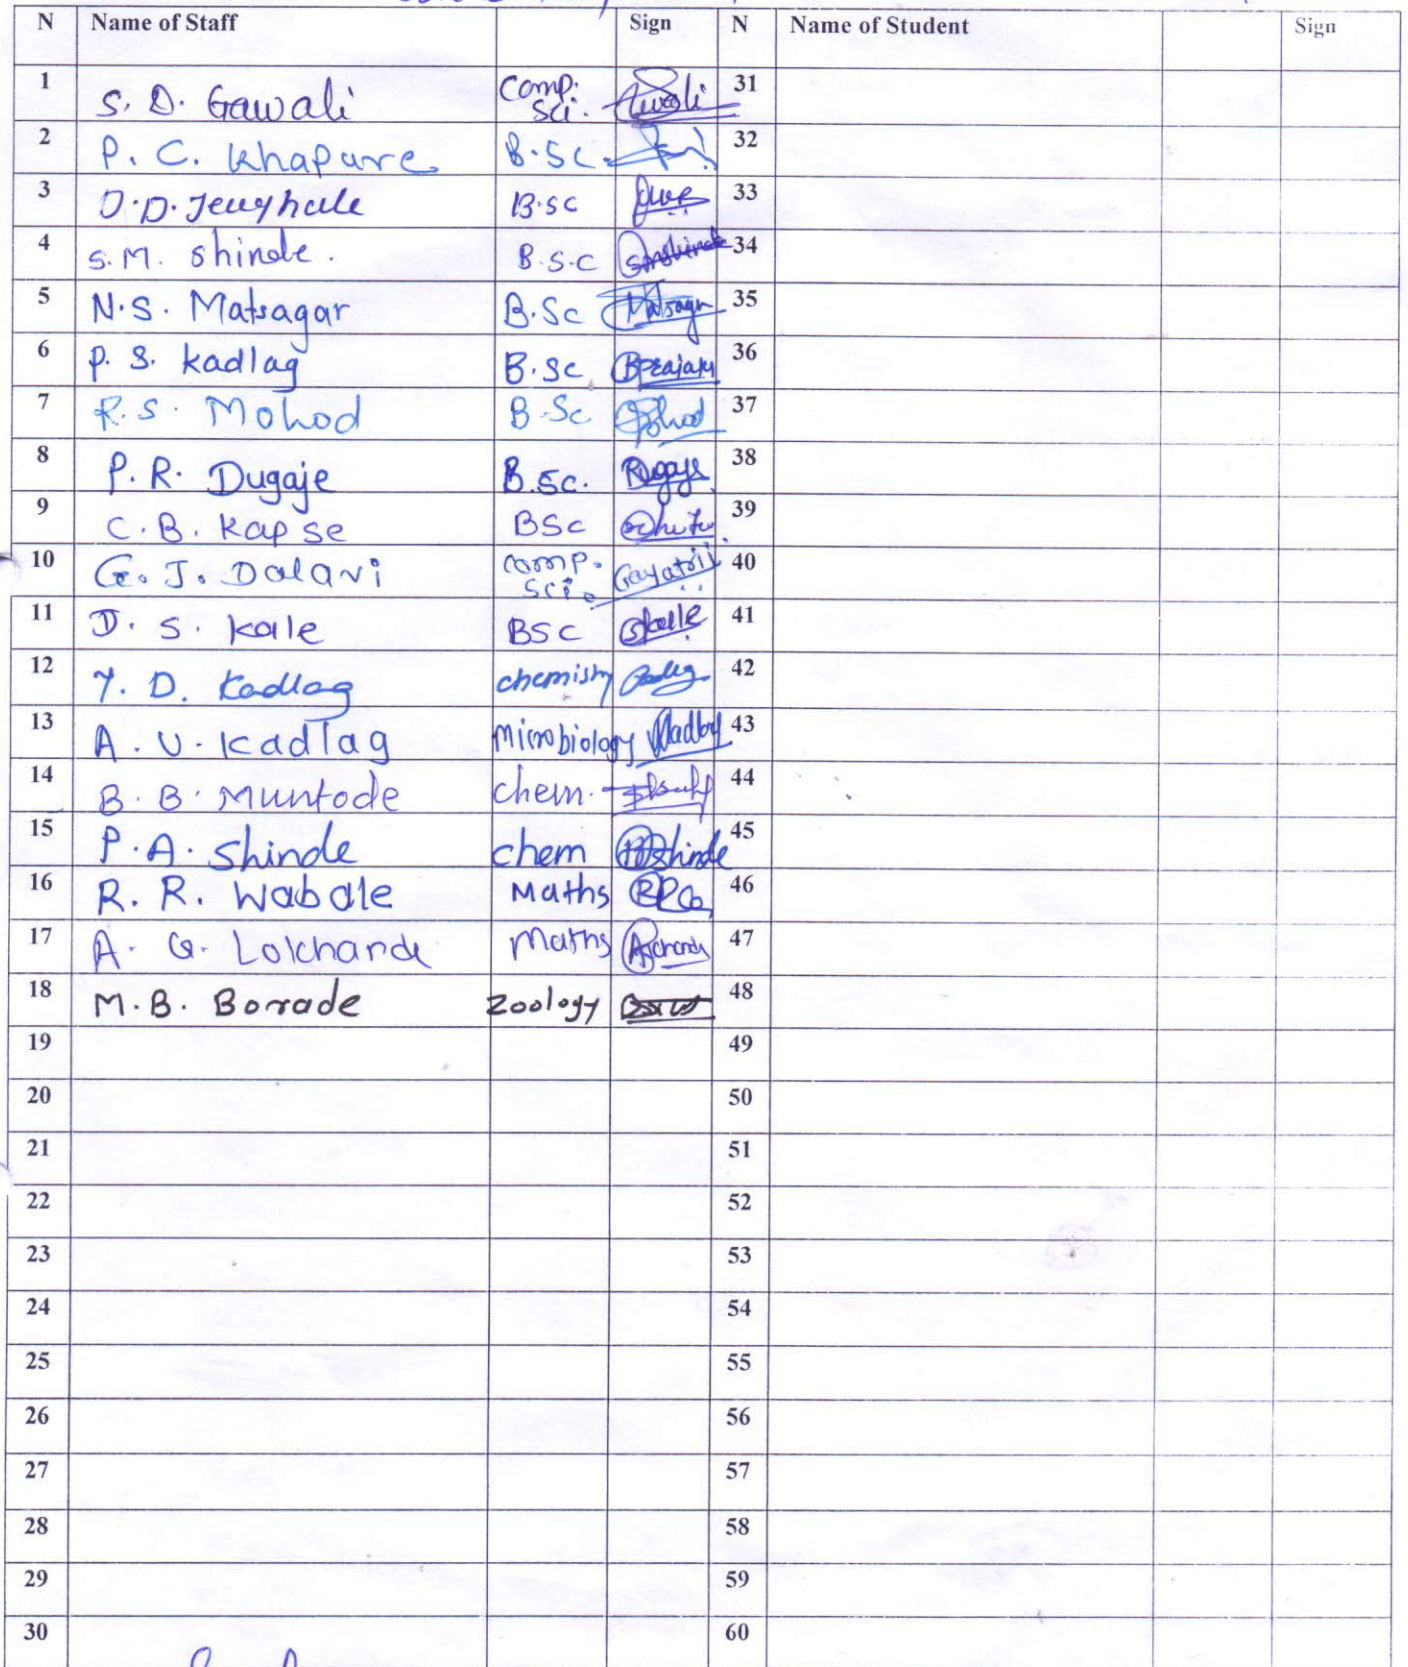 N Name of Staff Sign N Name of Student Sign
1 S. D. Gawali Comp. Sci. 31
2 P. C. Khapare B.Sc. 32
3 B.Sc 33
4 S.M. Shinde. B.S.C 34
5 N.S. Matsagar B.Sc Matsagar 35
6 P. S. Kadlag B.Sc 36
7 R.S. Mohod B.Sc 37
8 P. R. Dugaje B.Sc. 38
9 C. B. Kapse BSc 39
10 G. J. Dalavi Comp. Sci. Gayatrii 40
11 D. S. Kale BSC 41
12 Y. D. Kadlag chemistry 42
13 A. U. Kadlag Microbiology 43
14 B. B. Muntode chem. 44
15 P. A. Shinde chem 45
16 R. R. Wabale Maths 46
17 A. G. Lolchande Maths 47
18 M. B. Borade Zoology 48
19 49
20 50
21 51
22 52
23 53
24 54
25 55
26 56
27 57
28 58
29 59
30 60